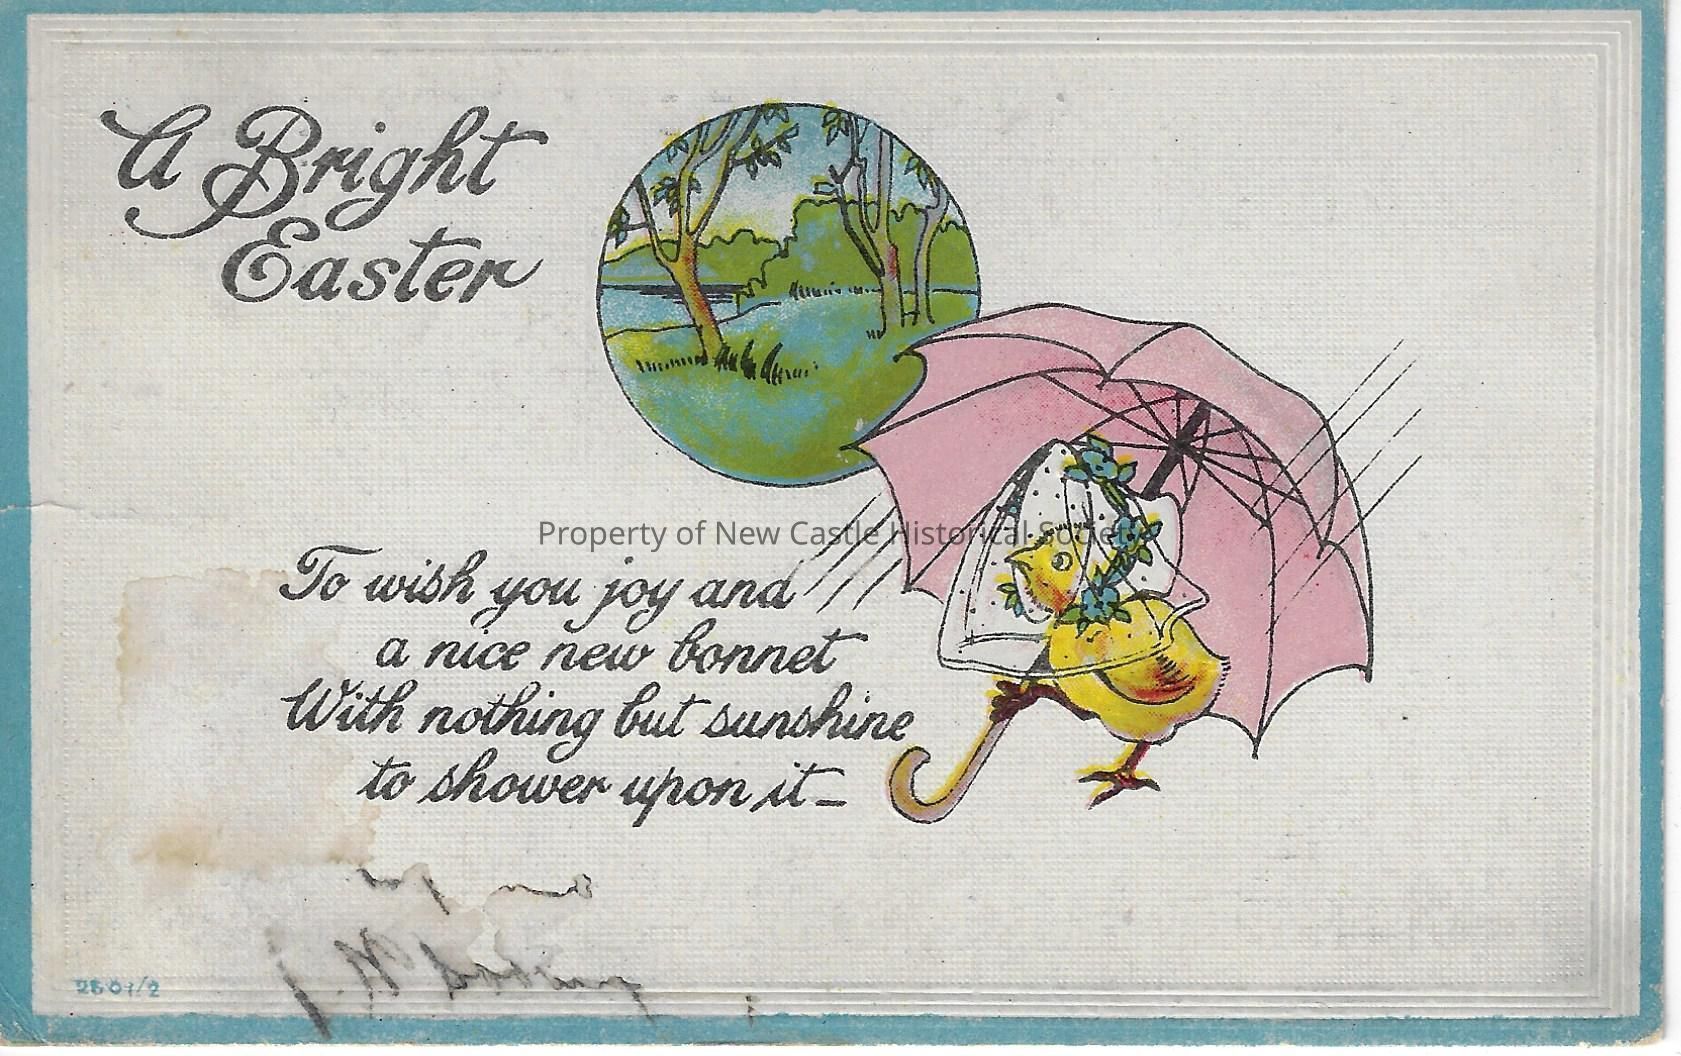 A Bright
Easter
Property of New Castle Historical Society
To wish you joy and
a nice new bonnet
With nothing but sunshine
to shower upon it—
2501/2